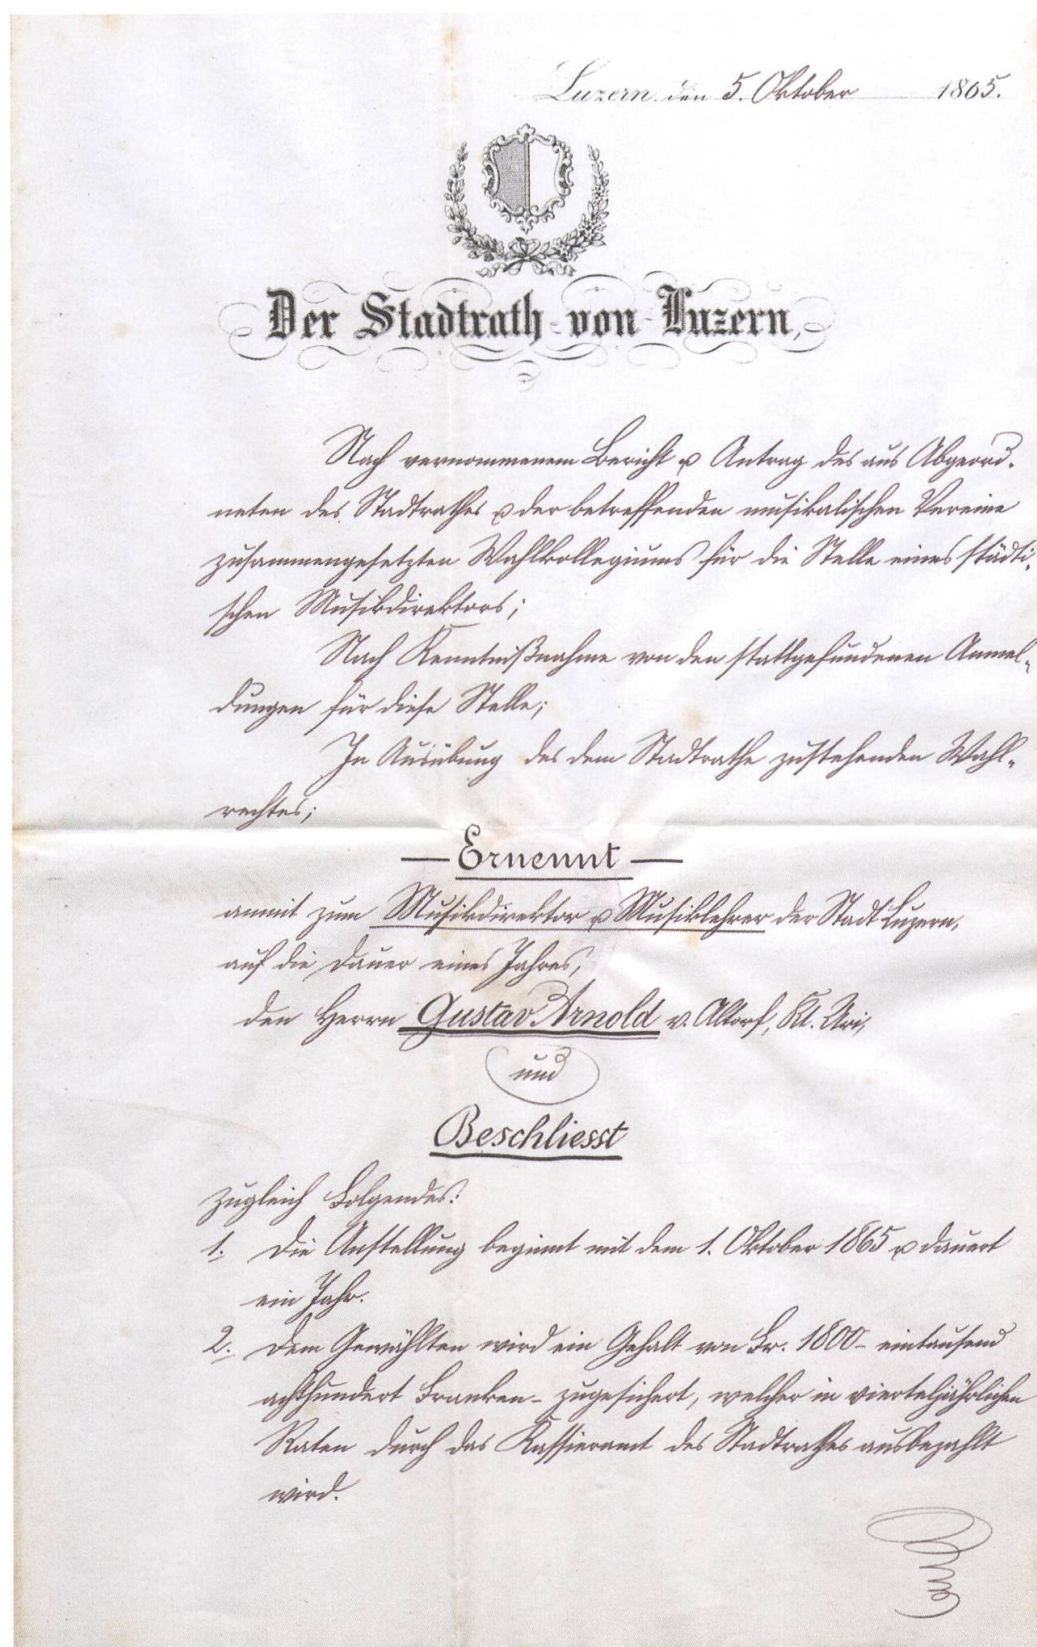 Luzern, den 5. Oktober 1865.
Der Stadtrath von Luzern,
Nach vernommenem Bericht u Antrag des aus Abgeord-
neten des Stadtrathes u der betreffenden musikalischen Vereine
zusammengesetzten Wahlkollegiums für die Stelle eines städti-
schen Musikdirektors;
Nach Kenntnißnahme von den stattgefundenen Anmel-
dungen für diese Stelle;
In Ausübung des dem Stadtrathe zustehenden Wahl-
rechtes;
— Ernennt —
anmit zum Musikdirektor u Musiklehrer der Stadt Luzern,
auf die Dauer eines Jahres,
den Herrn Gustav Arnold v. Altorf, Kt. Uri,
und
Beschliesst
zugleich Folgendes:
1. Die Anstellung beginnt mit dem 1. Oktober 1865 u dauert
ein Jahr.
2. Dem Gewählten wird ein Gehalt von Fr. 1800 – eintausend
achthundert Franken – zugesichert, welcher in vierteljährlichen
Raten durch das Kassieramt des Stadtrathes ausbezahlt
wird.